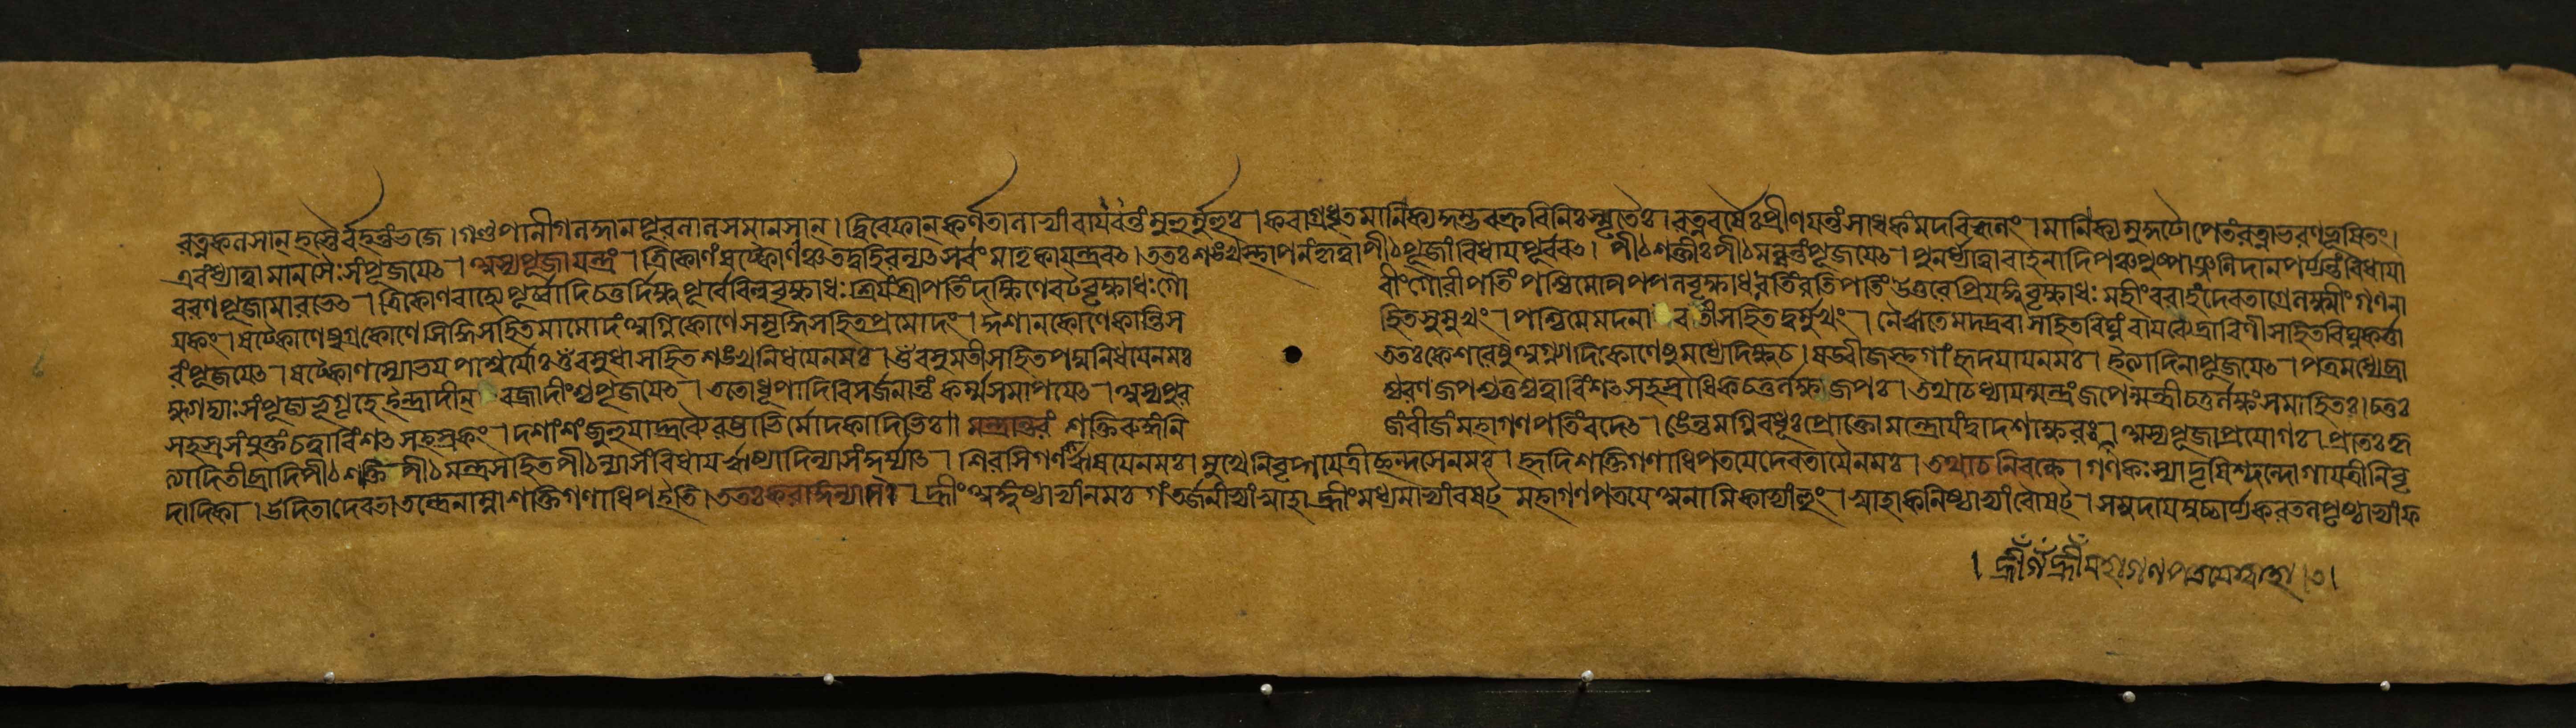 রত্নকলসান্ হস্তৈর্বহন্তং ভজে । গণ্ডপালীগলদ্দানপূরলালসমানসান্ । দ্বিরেফান্ কর্ণতালাভ্যাং বারয়ন্তং মুহুর্মুহুঃ । করাগ্রধৃতমাণিক্যকুম্ভবক্ত্রবিনিঃসৃতৈঃ । রত্নবর্ষৈঃ প্রীণয়ন্তং সাধকং মদবিহ্বলং । মাণিক্যমুকুটোপেতং রত্নাভরণভূষিতং ।
এবং ধ্যাত্বা মানসৈঃ সংপূজয়েৎ । অস্য পূজাযন্ত্রং । ত্রিকোণং ষট্কোণঞ্চ তদ্বহিরন্যৎ সর্বং মাতৃকাযন্ত্রবৎ । ততঃ শঙ্খস্থাপনং কৃত্বা পীঠপূজাং বিধায় পূর্ববৎ । পীঠশক্তীঃ পীঠমন্বন্তং পূজয়েৎ । পুনর্ধ্যাত্বাবাহনাদিপঞ্চপুষ্পাঞ্জলিদানপর্য্যন্তং বিধায়া
বরণপূজামারভেৎ । ত্রিকোণবাহ্যে পূর্ব্বাদিচতুর্দিক্ষু পূর্বে বিল্ববৃক্ষাধঃ শ্রিয়ং শ্রীপতিং দক্ষিণে বটবৃক্ষাধঃ গৌ রীং গৌরীপতিং পশ্চিমে পিপ্পলবৃক্ষাধঃ রতিং রতিপতিং উত্তরে প্রিয়ঙ্গুবৃক্ষাধঃ মহীং বরাহং দেবতাগ্রে লক্ষ্মীং গণনা
য়কং । ষট্কোণেষু অগ্রকোণে সিদ্ধিসহিতমামোদং অগ্নিকোণে সমৃদ্ধিসহিতপ্রমোদং । ঈশানকোণে কান্তিস হিতসুমুখং । পশ্চিমে মদনাবতীসহিতদুর্মুখং । নৈরৃতে মদদ্রবাসহিতবিঘ্নং বায়ব্যে দ্রাবিণীসহিতবিঘ্নকর্ত্তা
রং পূজয়েৎ । ষট্কোণস্যোভয়পার্শ্বয়োঃ ওঁ বসুধাসহিতশঙ্খনিধয়ে নমঃ । ওঁ বসুমতীসহিতপদ্মনিধয়ে নমঃ ততঃ কেশরেষু অগ্ন্যাদিকোণেষু মধ্যে দিক্ষু চ । ষড্বীজস্থগাং হৃদয়ায় নমঃ । ইত্যাদিনা পূজয়েৎ । পত্রমধ্যে ব্রা
হ্ম্যাদ্যাঃ সংপূজ্য ভূগৃহে ইন্দ্রাদীন্ বজ্রাদীংশ্চ পূজয়েৎ । ততো ধূপাদিবিসর্জনান্তং কর্ম্ম সমাপয়েৎ । অস্য পুর শ্চরণজপশ্চতুশ্চত্বারিংশৎসহস্রাধিকচতুর্লক্ষজপঃ । তথাচ ধ্যায়ন্মন্ত্রং জপেন্মন্ত্রী চতুর্লক্ষং সমাহিতঃ । চতুঃ
সহস্রসংযুক্তং চত্বারিংশৎসহস্রকং । দশাংশং জুহুয়াদ্দ্রব্যৈরষ্টাভির্মোদকাদিভিঃ ॥ মন্ত্রান্তরং শক্তিরুদ্ধং নি জং বীজং মহাগণপতিং বদেৎ । ঙেন্তমগ্নিবধূঃ প্রোক্তো মন্ত্রোয়ং দ্বাদশাক্ষরঃ । অস্য পূজাপ্রয়োগঃ । প্রাতঃকৃ
ত্যাদিতীব্রাদিপীঠশক্তিপীঠমন্ত্রসহিতপীঠন্যাসং বিধায় ঋষ্যাদিন্যাসং কুর্য্যাৎ । শিরসি গণকঋষয়ে নমঃ । মুখে নিবৃদ্গায়ত্রীচ্ছন্দসে নমঃ । হৃদি শক্তিগণাধিপতয়ে দেবতায়ৈ নমঃ । তথাচ নিবন্ধে । গণকঃ স্যাদৃষিশ্ছন্দো গায়ত্রী নিবৃ
দাদিকা । উদিতা দেবতা তন্ত্রে নাম্না শক্তিগণাধিপ ইতি । ততঃ করাঙ্গন্যাসঃ । হ্রীং অঙ্গুষ্ঠাভ্যাং নমঃ গং তর্জনীভ্যাং স্বাহা হ্রীং মধ্যমাভ্যাং বষট্ মহাগণপতয়ে অনামিকাভ্যাং হুং । স্বাহা কনিষ্ঠাভ্যাং বৌষট্ । সমুদায়মুচ্চার্য্য করতলপৃষ্ঠাভ্যাং ফ
। হ্রীঁ গঁ হ্রীঁ মহাগণপতয়ে স্বাহা । ০ ।